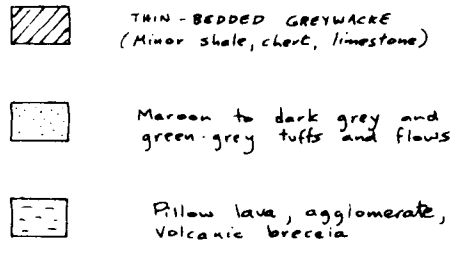 THIN-BEDDED GREYWACKE
(Minor shale, chert, limestone)
Maroon to dark grey and
green-grey tuffs and flows
Pillow lava, agglomerate,
Volcanic breccia